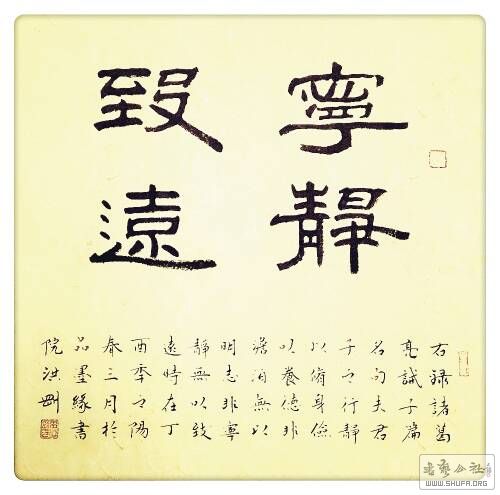 寧靜
致遠
右録諸葛
亮誡子篇
名句夫君
子之行靜
以脩身儉
以養德非
澹泊無以
明志非寧
靜無以致
遠時在丁
酉季之陽
春三月於
品墨緣書
院洪剛
书艺公社
WWW.SHUFA.ORG